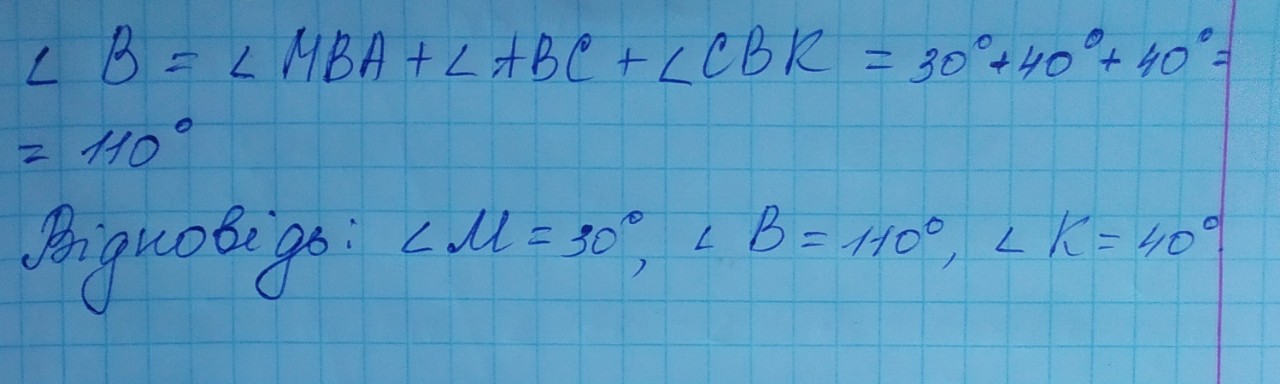 ∠ B = ∠ MBA + ∠ ABC + ∠ CBK = 30° + 40° + 40° =
= 110°
Відповідь: ∠ M = 30°, ∠ B = 110°, ∠ K = 40°